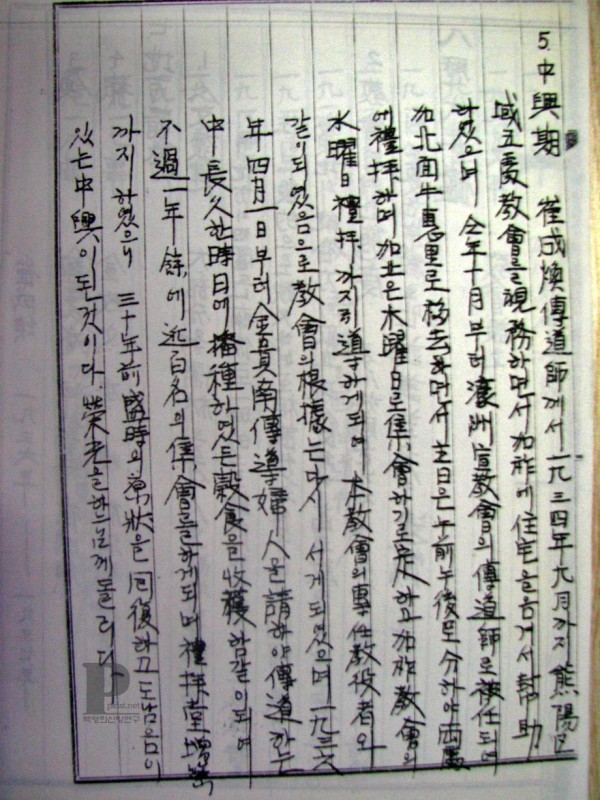 5. 中興期 崔成煥傳道師께서 一九三四年 九月까지 熊陽區
域 五處敎會를 視務하면서 加祚에 住宅을 옴겨서 幫助
하였으며 仝年 十月부터 濠洲宣敎會의 傳道師로 被任되여
加北面 牛惠里로 移去하면서 主日은 午前 午後로 分하야 兩處
에 禮拜하며 加北은 木曜日로 集會하기로 定하고 加祚敎會의
水曜日 禮拜까지 引導하게 되며 本敎會의 專任敎役者와
같이 되였음으로 敎會의 根據는 다시 서게 되였으며 一九三六
年 四月 一日부터 金貴南傳導婦人을 請하야 傳道하는
中 長久한 時日에 播種하였든 穀食을 收穫함같이 되여
不過 一年餘에 近百名의 集會를 하게 되며 禮拜堂 增築
까지 하였으니 三十年前 盛時의 狀을 回復하고도 남음이
있는 中興이 된 것이다. 榮光을 하나님께 돌리다
pckst.net